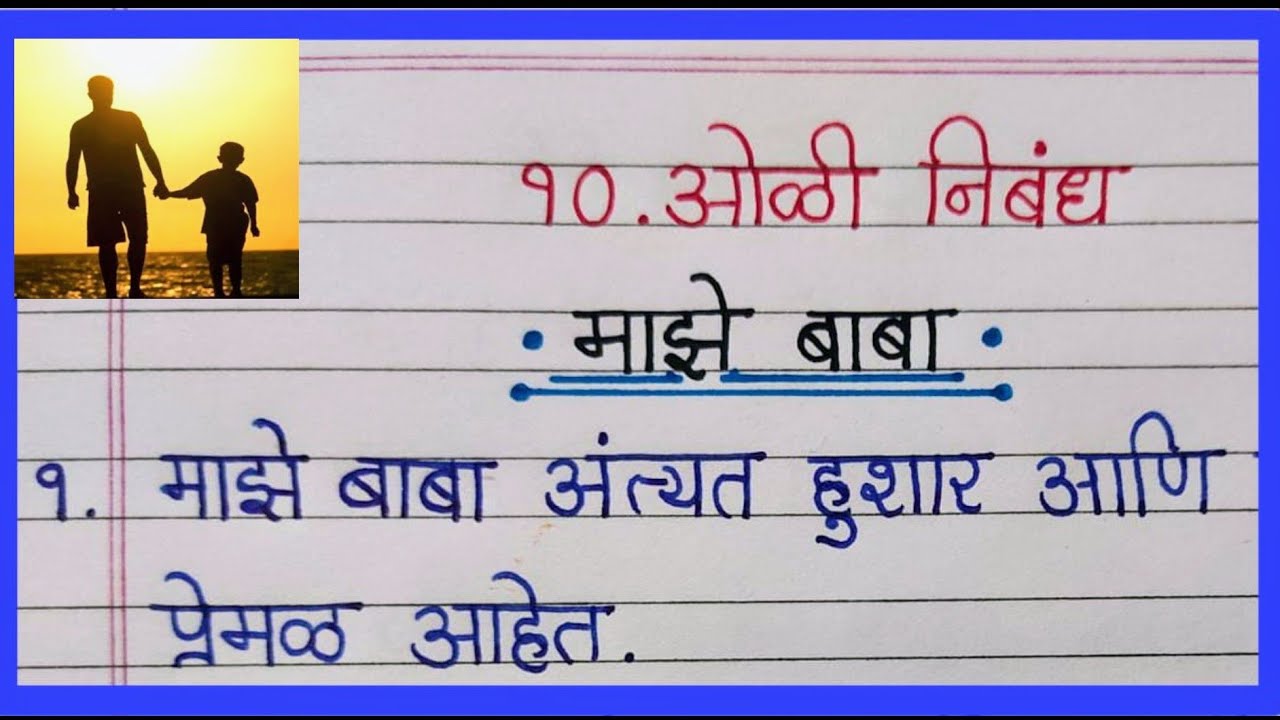 १०.ओळी निबंध
माझे बाबा
१. माझे बाबा अंत्यत हुशार आणि
प्रेमळ आहेत.